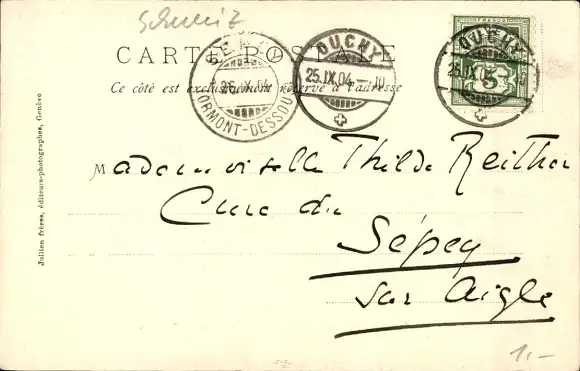 Schweiz
CARTE POSTALE
Ce côté est exclusivement réservé à l'adresse
26.IX.04
ORMONT-DESSOUS
OUCHY
25.IX.04.-10
OUCHY
25.IX.04
FRANCO
5
Mademoiselle Thilda Reither
Cure du
Sépey
sur Aigle
Jullien frères, éditeurs-photographes, Genève
1.-